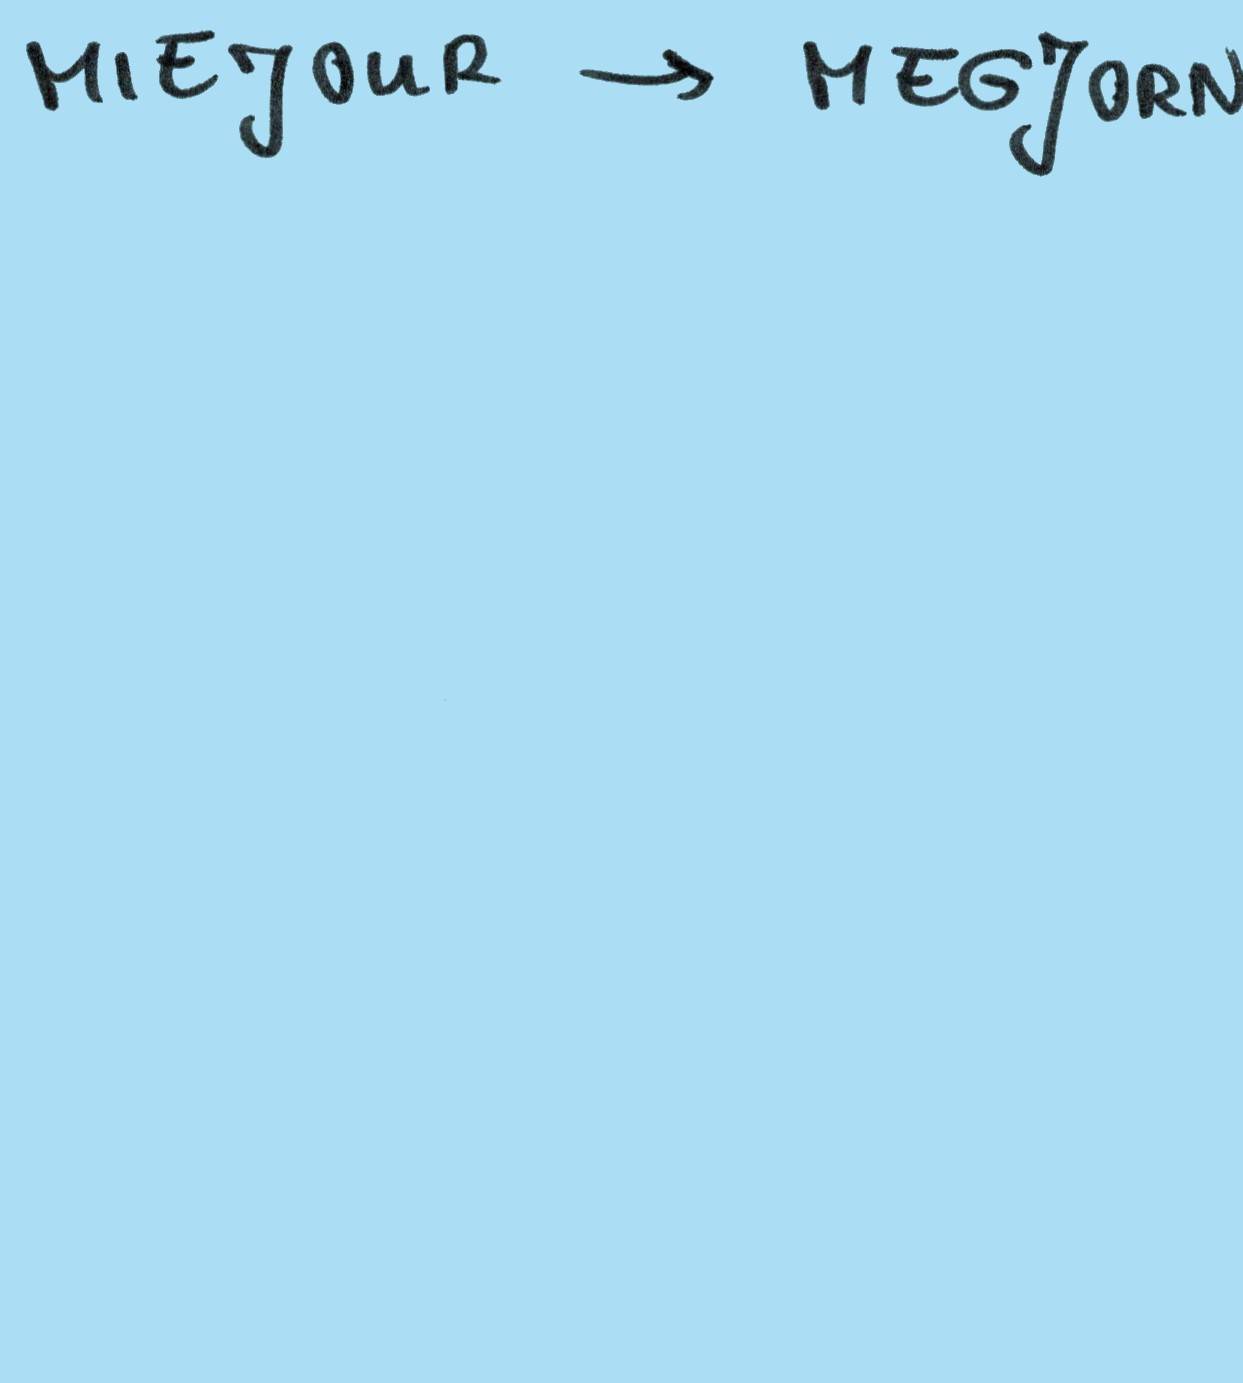 MIEJOUR → MEGJORN